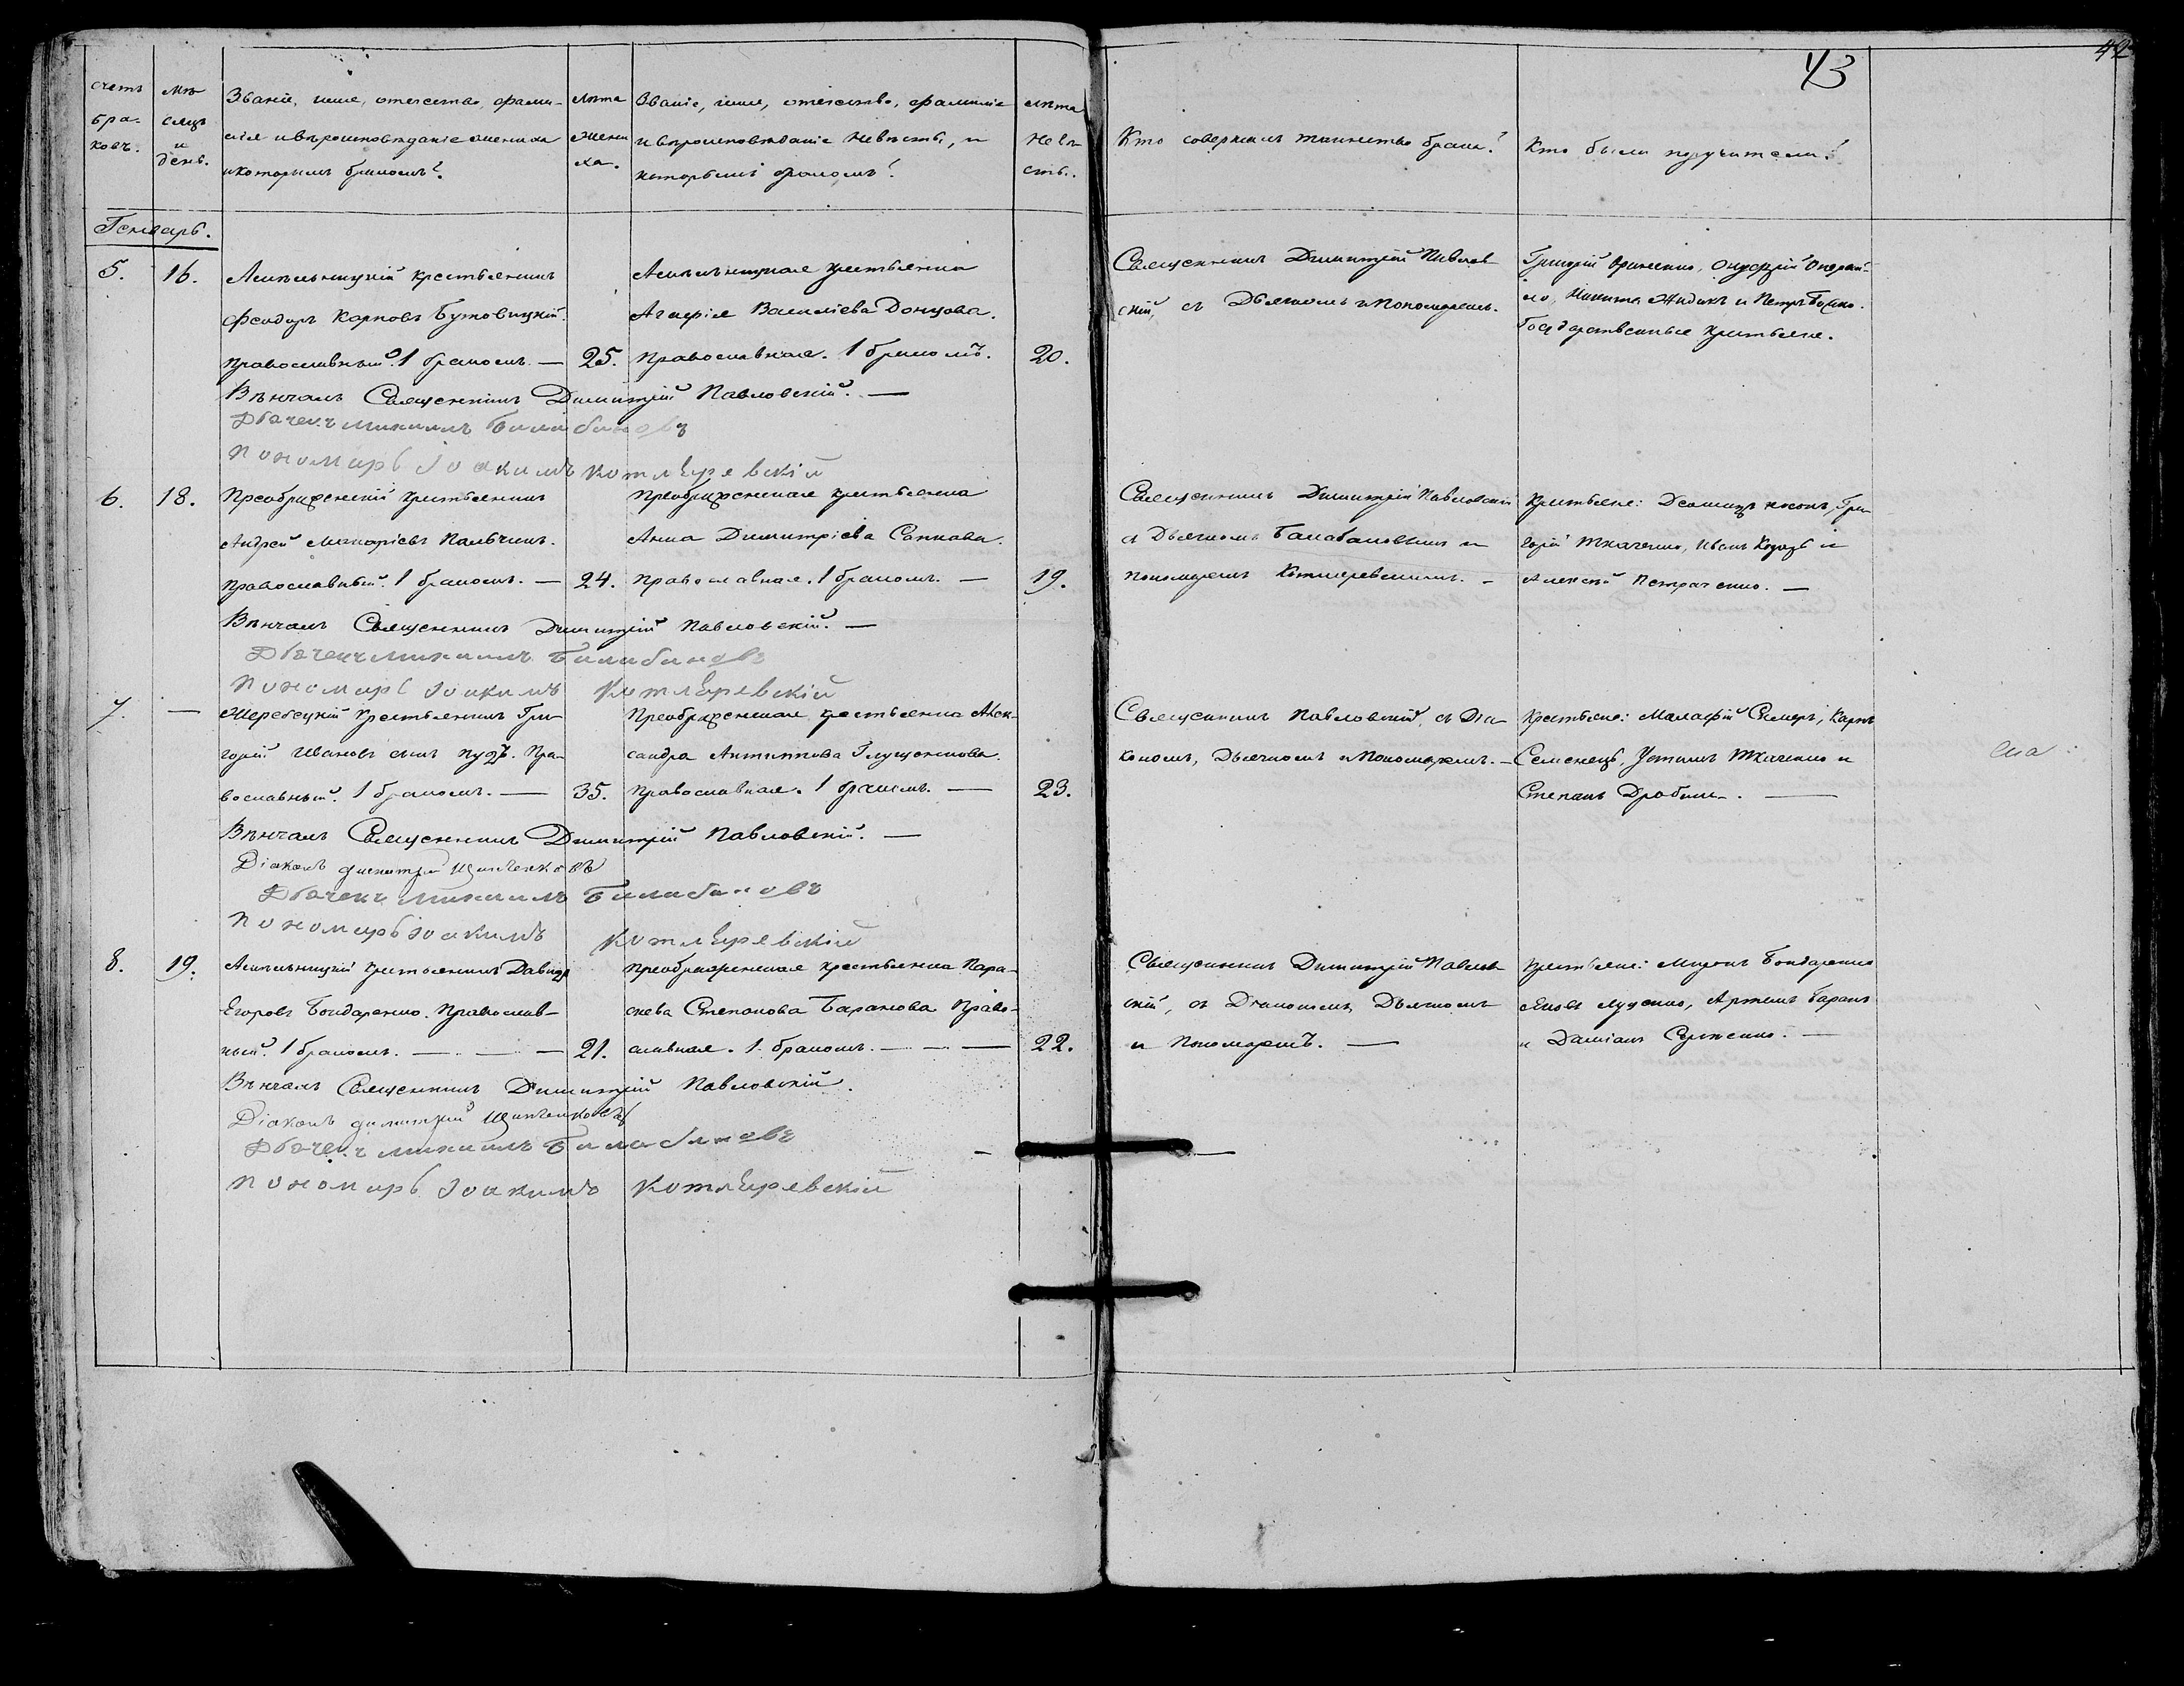 42
43
Счетъ браковъ.
Мѣсяцъ и день.
Званіе, имя, отечество, фамилія и вѣроисповѣданіе жениха и которымъ бракомъ?
Лѣта жениха.
Званіе, имя, отечество, фамилія и вѣроисповѣданіе невѣсты, и которымъ бракомъ?
Лѣта невѣсты.
Кто совершалъ таинство брака?
Кто были поручители?
Генварь.
5.
16.
крестьянинъ
Феодоръ Карповъ Бутовицкій.
православный. 1 бракомъ. —
25.
крестьянка
Агафія Василіева Донцова.
православная. 1 бракомъ.
20.
Священникъ Димитрій Павлов-
скій, съ Дьячкомъ и Пономаремъ.
Григорій
Никита Жидикъ и Петръ Бойко.
Государственные крестьяне.
Вѣнчалъ Священникъ Димитрій Павловскій. —
Дьячекъ Михаилъ
Пономарь Іоакимъ Котляревскій
6.
18.
Преображенскій крестьянинъ
Андрей Макаріевъ
православный. 1 бракомъ. —
24.
Преображенская крестьянка
Анна Димитріева
православная. 1 бракомъ. —
19.
Священникъ Димитрій Павловскій
съ Дьячкомъ Балабановымъ и
пономаремъ Котляревскимъ. —
Крестьяне: Гри-
горій Ткаченко, Иванъ Козарь и
Алексѣй Петраченко. —
Вѣнчалъ Священникъ Димитрій Павловскій. —
Дьячекъ Михаилъ
Пономарь Іоакимъ Котляревскій
7.
—
Жеребецкій крестьянинъ Гри-
горій Ивановъ сынъ Пра-
вославный. 1 бракомъ. —
35.
Преображенская крестьянка Алек-
сандра Антипова Глущенкова.
православная. 1 бракомъ. —
23.
Священникъ Павловскій, съ Діа-
кономъ, Дьячкомъ и Пономаремъ. —
Крестьяне: Малафій Карпъ
Семенецъ, Устимъ Ткаченко и
Степанъ —
Вѣнчалъ Священникъ Димитрій Павловскій. —
Діаконъ Димитрій
Дьячекъ Михаилъ
Пономарь Іоакимъ Котляревскій
8.
19.
крестьянинъ Давидъ
Егоровъ Бондаренко. Православ-
ный. 1 бракомъ. — — —
21.
Преображенская крестьянка Пара-
скева Степанова Баранова Право-
славная. 1 бракомъ. — —
22.
Священникъ Димитрій Павлов-
скій, съ Діакономъ, Дьячкомъ
и Пономаремъ. —
Крестьяне: Миронъ Бондаренко
Яковъ Артемъ Баранъ
и Даміанъ —
Вѣнчалъ Священникъ Димитрій Павловскій.
Діаконъ Димитрій
Дьячекъ Михаилъ
Пономарь Іоакимъ Котляревскій